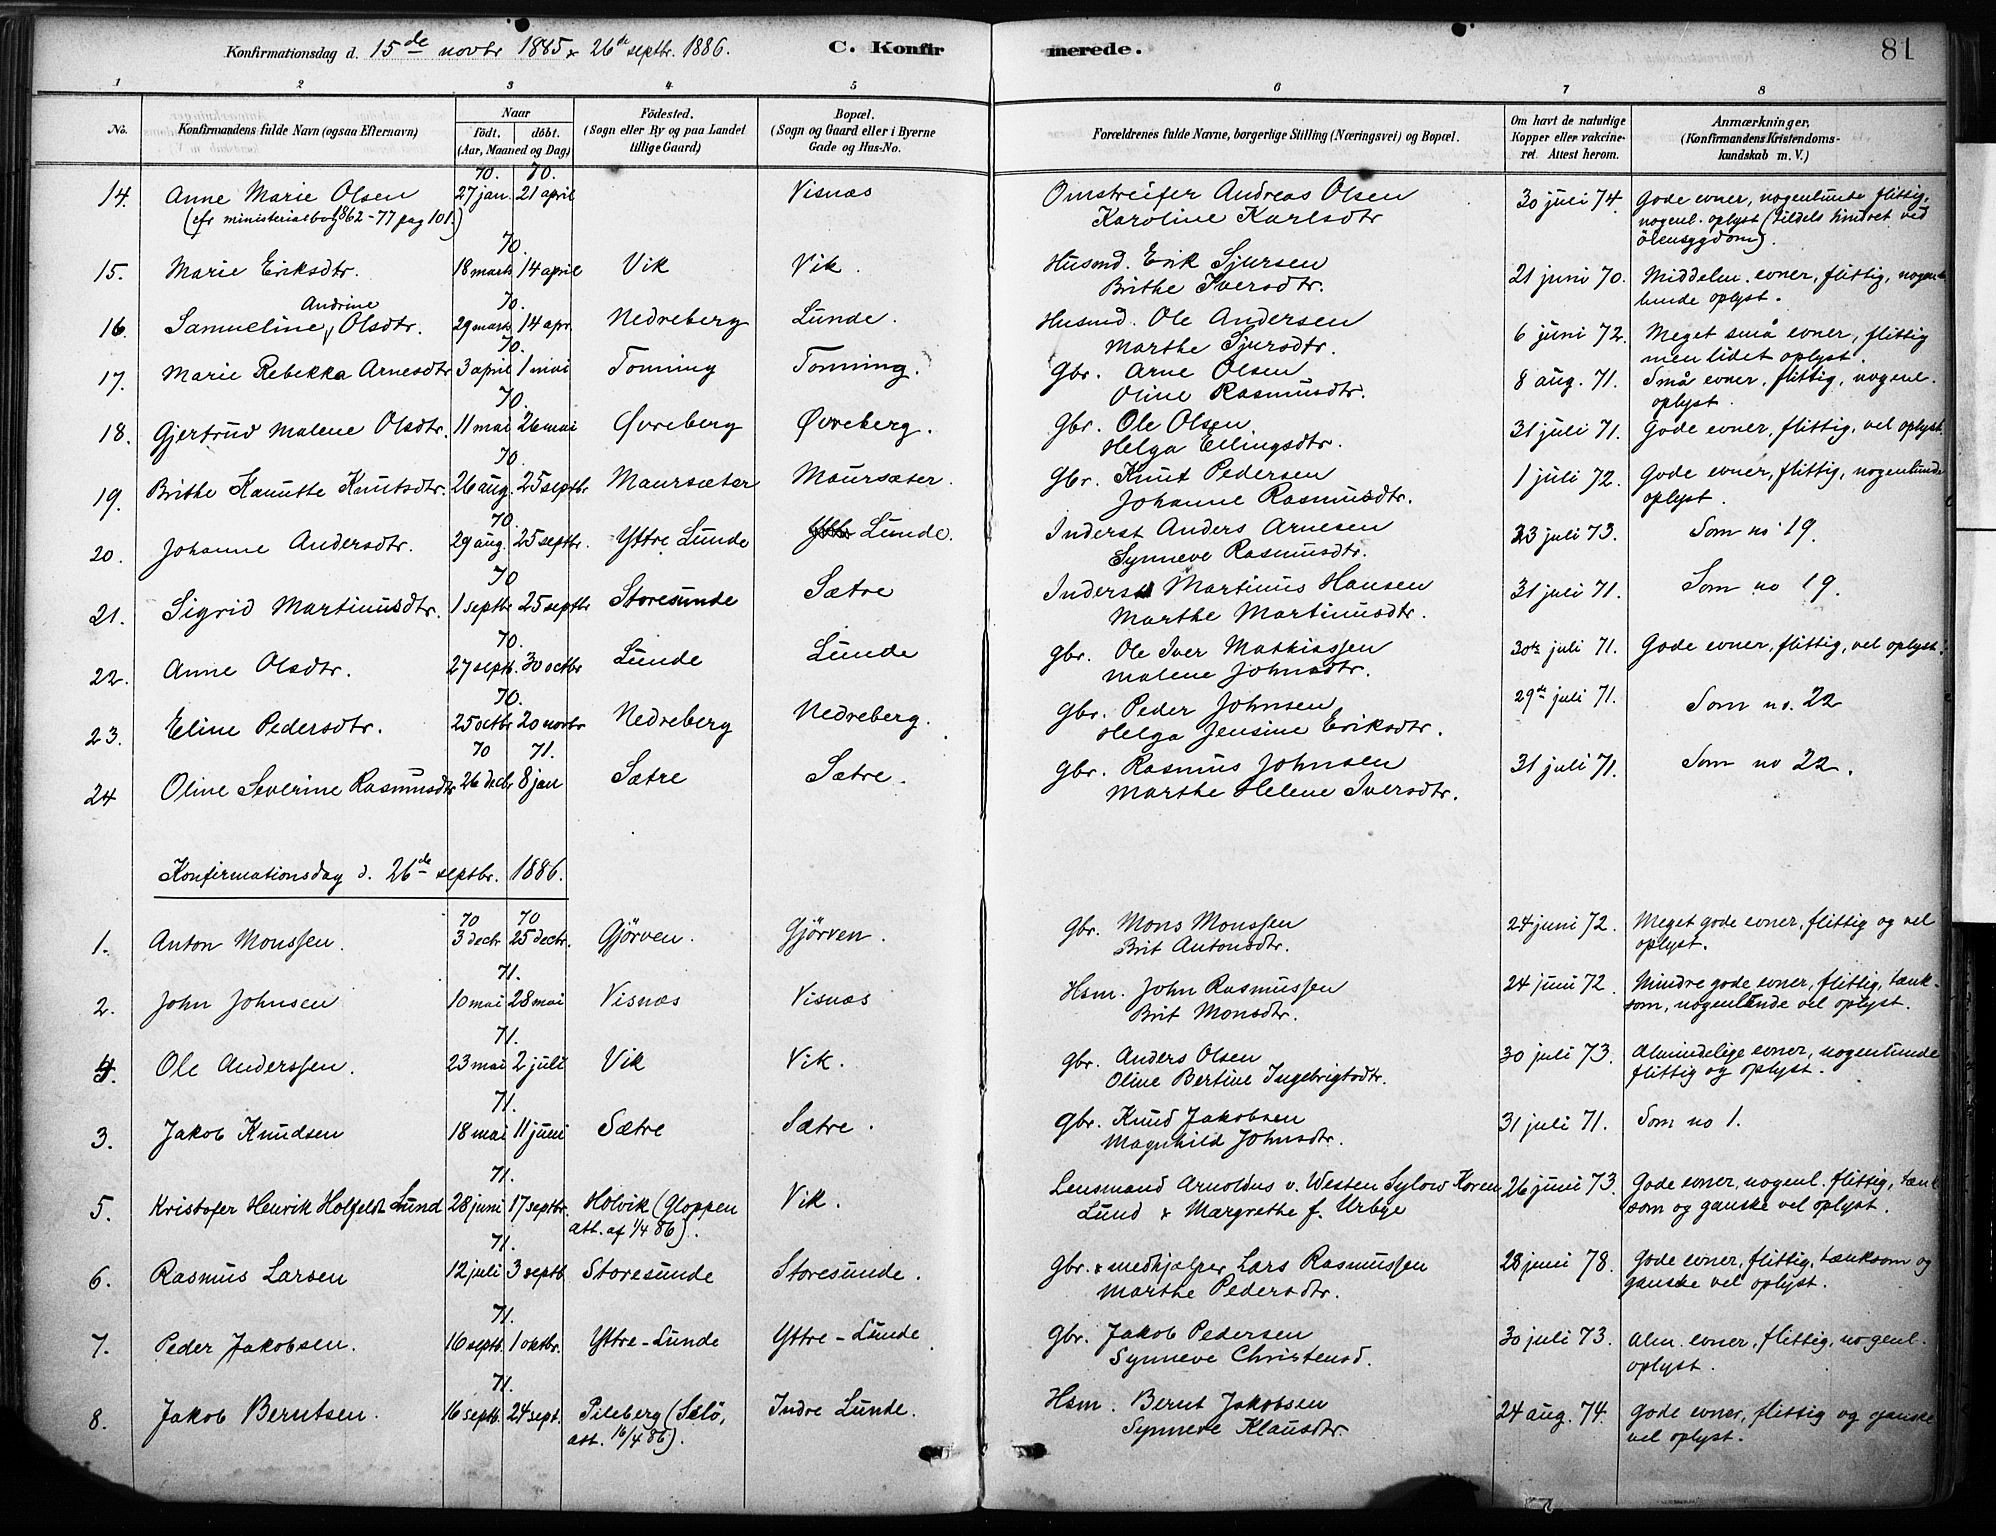 Konfirmationsdag d. 15de novbr 1885 & 26de septbr. 1886. C. Konfirmerede. 81
1 2 3 4 5 6 7 8
No. Konfirmandens fulde Navn (ogsaa Efternavn) Naar födt. döbt. (Aar, Maaned og Dag) Födested. (Sogn eller By og paa Landet tillige Gaard) Bopæl. (Sogn og Gaard eller i Byerne Gade og Hus-No. Forældrenes fulde Navne, borgerlige Stilling (Næringsvei) og Bopæl. Om havt de naturlige Kopper eller vakcineret. Attest herom. Anmærkninger, (Konfirmandens Kristendomskundskab m. V.)
70. 70.
14. Anne Marie Olsen 27 jan. 21 april Visnæs Omstreifer Andreas Olsen 30 juli 74. Gode evner, nogenlunde flittig,
(cfr ministerialbog 1862-77 pag 101.) Karoline Karlsdtr nogenl. oplyst (tildels hindret ved
öiensygdom).
70.
15. Marie Eriksdtr. 18 marts 14 april Vik Vik. Husmd. Erik Sjursen 21 juni 70. Middelm. evner, flittig, nogen-
Brithe Iversdtr. lunde oplyst.
Andrine 70.
16. Samueline, Olsdtr. 29 marts 14 apr. Nedreberg Lunde. Husmd. Ole Andersen 6 juni 72. Meget små evner, flittig
Marthe Sjursdtr. men lidet oplyst.
70.
17. Marie Rebekka Arnesdtr 3 april 1 mai Tonning Tonning. Gbr. Arne Olsen 8 aug. 71. Små evner, flittig, nogenl.
Oline Rasmusdtr. oplyst.
70.
18. Gjertrud Malene Olsdtr. 11 mai 26 mai Øvreberg Øvreberg. Gbr. Ole Olsen 31 juli 71. Gode evner, flittig, vel oplyst.
Helga Ellingsdtr.
70.
19. Brithe Kanutte Knutsdtr. 26 aug. 25 septbr Maursæter Maursæter. Gbr. Knut Pedersen 1 juli 72. Gode evner, flittig, nogenlunde
Johanne Rasmusdtr. oplyst.
70.
20. Johanne Andersdtr. 29 aug. 25 septbr. Yttre Lunde Lunde. Inderst Anders Arnesen 23 juli 73. Som no 19.
Synneve Rasmusdtr.
70
21. Sigrid Martinusdtr. 1 septbr 25 septbr Storesunde Sætre Inderst Martinus Hansen 31 juli 71. Som no 19.
Marthe Martinusdtr.
70.
22. Anne Olsdtr. 27 septb. 30 octbr Lunde Lunde gbr. Ole Iver Mathiassen 30te juli 71. Gode evner, flittig, vel oplyst.
Malene Johnsdtr.
70.
23. Eline Pedersdtr. 25 octbr 20 novbr Nedreberg Nedreberg. Gbr. Peder Johnsen 29de juli 71. Som no. 22
Helga Jensine Eriksdtr.
70 71.
24 Oline Severine Rasmusdtr 26 decbr 8 jan Sætre Sætre. Gbr. Rasmus Johnsen 31 juli 71. Som no 22.
Marthe Helene Iversdtr.
Konfirmationsdag d. 26de septbr. 1886.
70 70
1. Anton Monssen. 3 decbr 25 decbr. Gjörven. Gjörven. Gbr. Mons Monssen 24 juni 72. Meget gode evner, flittig og vel
Brit Antonsdtr. oplyst.
71.
2. John Johnsen 10 mai 28 mai Visnæs Visnæs Hsm. John Rasmussen 24 juni 72. Mindre gode evner, flittig, tænk-
Brit Monsdtr. som, nogenlunde vel oplyst.
71.
4. Ole Anderssen. 23 mai 2 juli Vik Vik. Gbr. Anders Olsen 30 juli 73. Almindelige evner, nogenlunde
Oline Bertine Ingebrigtsdtr. flittig og oplyst.
71.
3. Jakob Knudsen 18 mai 11 juni Sætre Sætre. Gbr. Knud Jakobsen 31 juli 71. Som no 1.
Magnhild Johnsdtr.
71.
5. Kristofer Henrik Holfeldt Lund 28 juni 17 septbr. Holvik (Gloppen Vik. Lensmand Arnoldus v. Westen Sylow Koren 26 juni 73. Gode evner, nogenl. flittig, tænk
att. af 1/4 86). Lund & Margrethe f. Urbye som og ganske vel oplyst.
71.
6. Rasmus Larsen 12 juli 3 septb. Storesunde Storesunde. Gbr. & medhjælper Lars Rasmussen 28 juni 78. Gode evner, flittig, tænksom og
Marthe Pedersdtr. ganske vel oplyst.
71.
7. Peder Jakobsen. 16 septb. 1 oktbr. Yttre-Lunde Yttre-Lunde Gbr. Jakob Pedersen 30 juli 73. Alm. evner, flittig, nogenl.
Synneve Christensd. oplyst.
71.
8. Jakob Berntsen. 16 septb. 24 sept. Pileberg (Selö, Indre Lunde. Hsm. Bernt Jakobsen 24 aug. 74. Gode evner, flittig og ganske
att. 16/4 86). Synneve Klausdtr. vel oplyst.